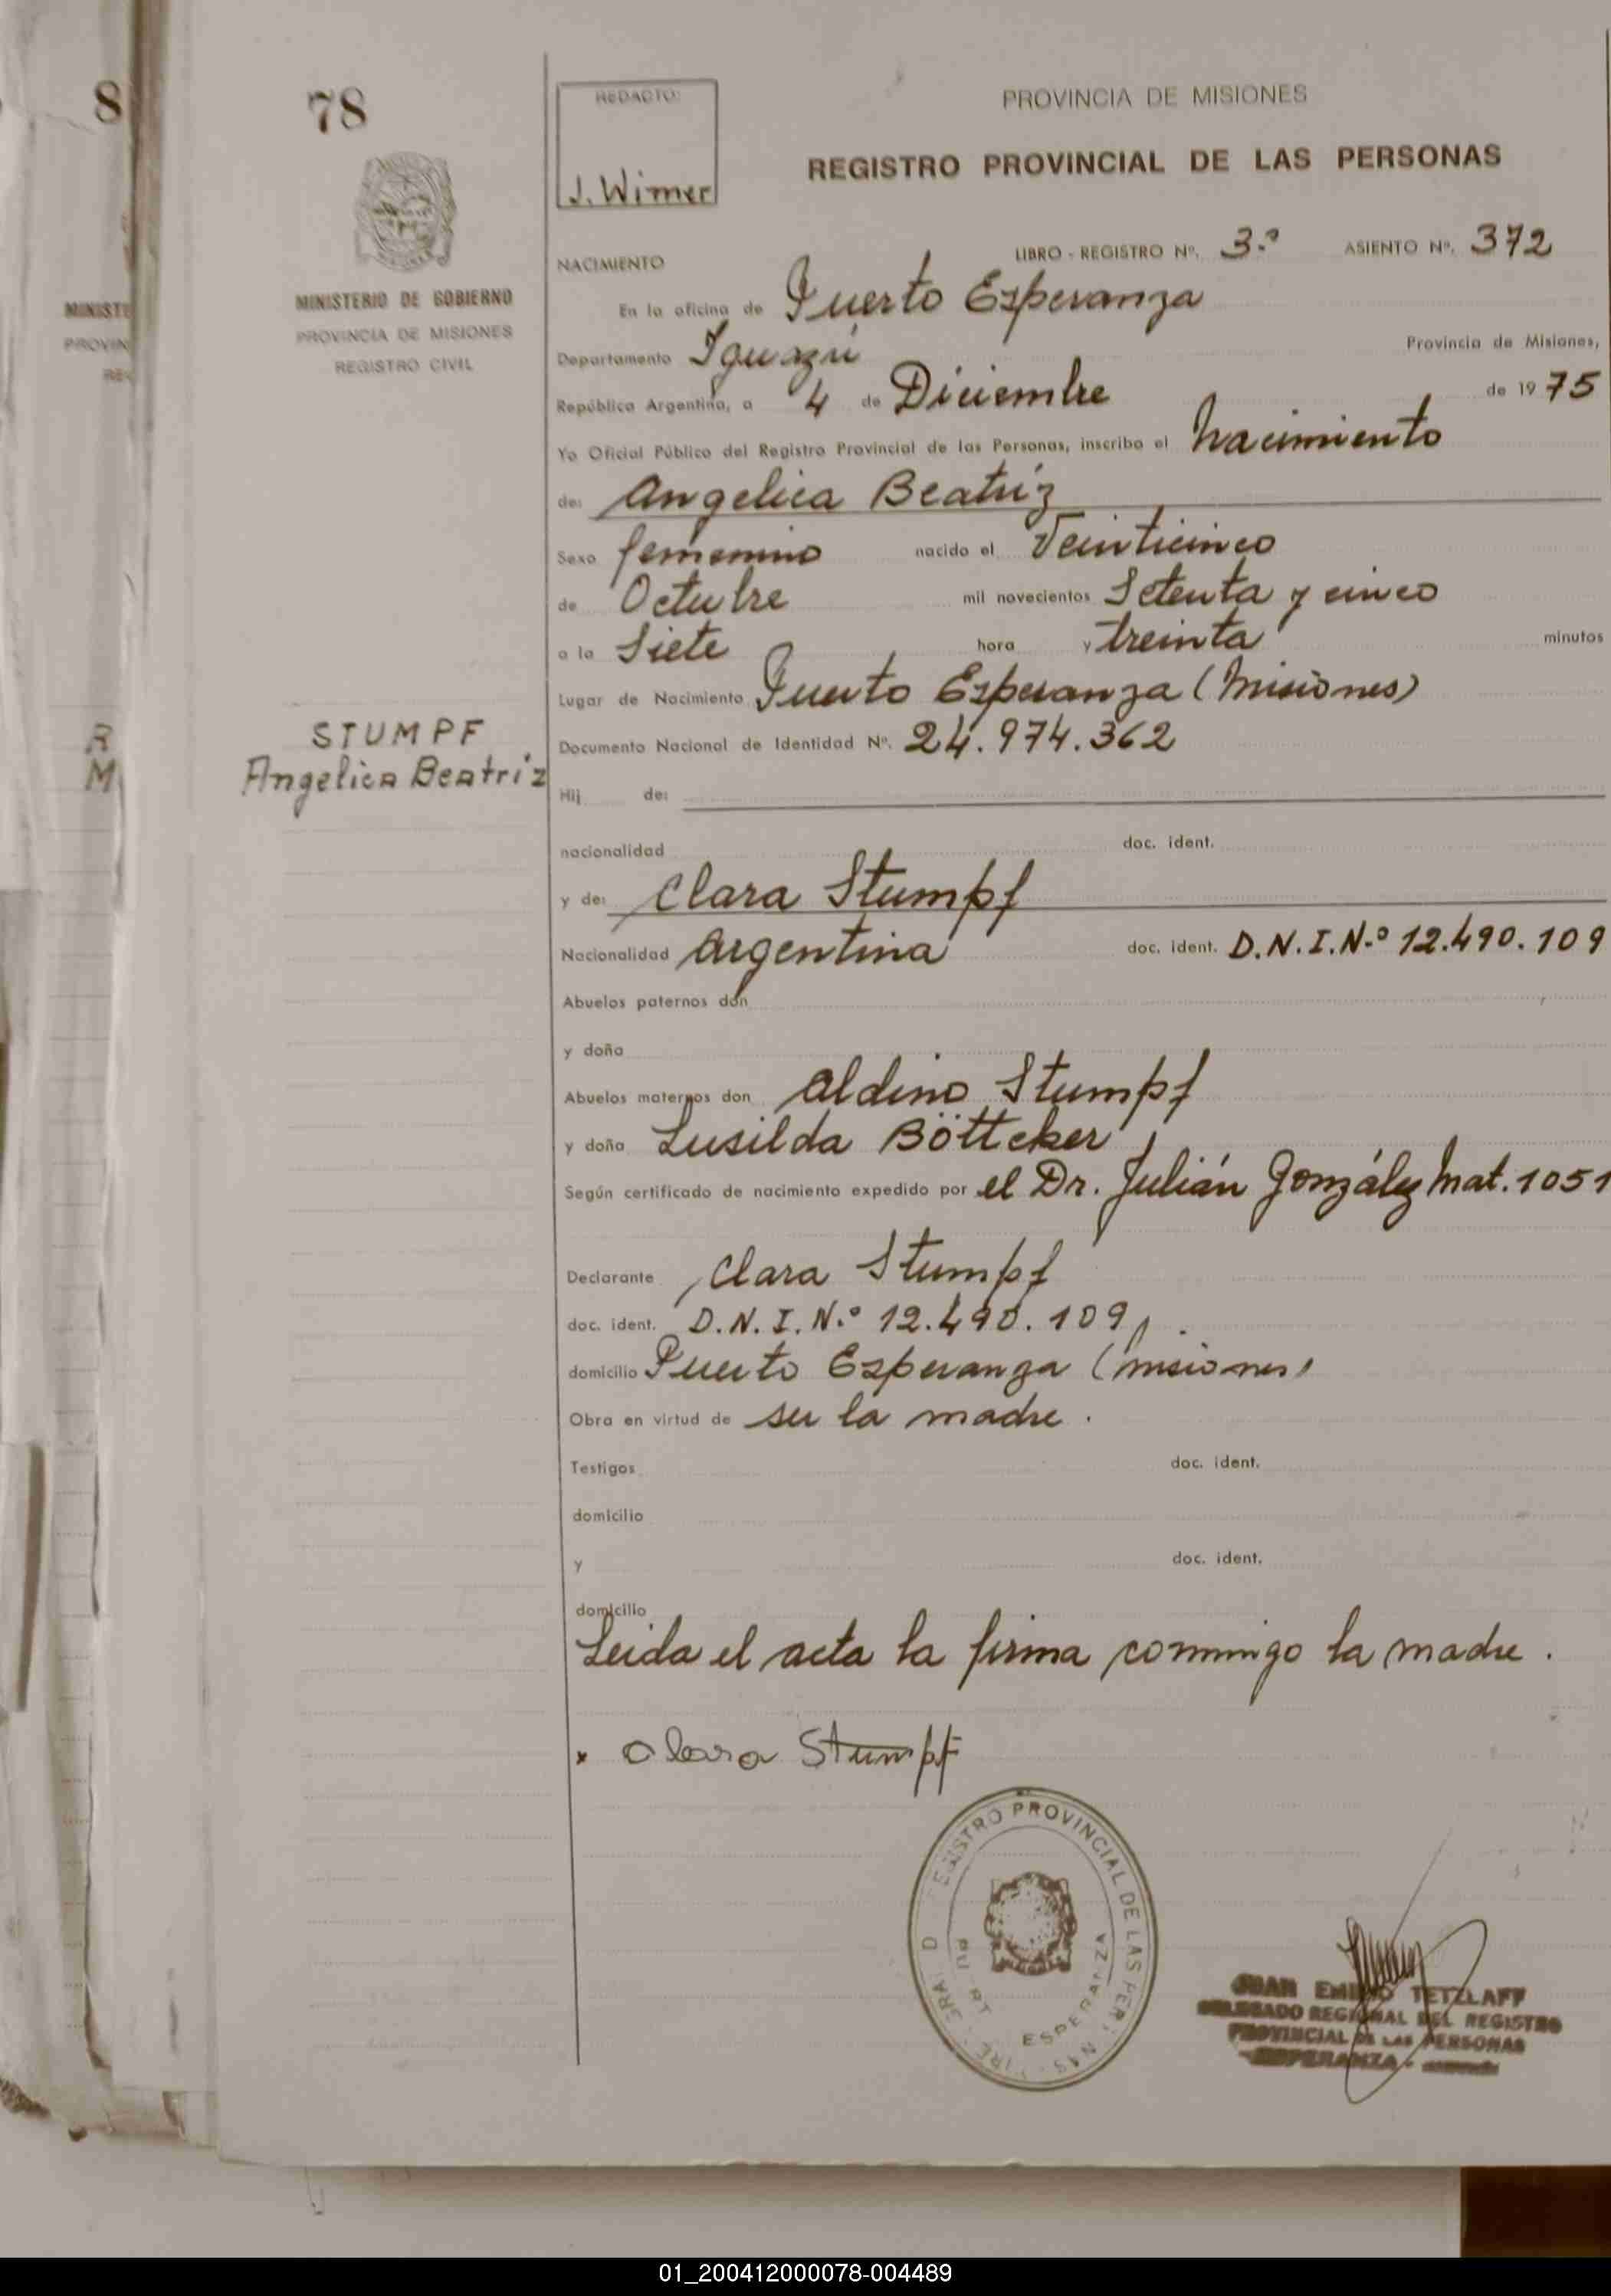 8
78
MINISTE
PROVIN
RE
R
M
MINISTERIO DE GOBIERNO
PROVINCIA DE MISIONES
REGISTRO CIVIL
STUMPF
Angelica Beatriz
REDACTO:
J. Wimer
PROVINCIA DE MISIONES
REGISTRO PROVINCIAL DE LAS PERSONAS
NACIMIENTO LIBRO - REGISTRO Nº. 3.º ASIENTO Nº. 372
En la oficina de Puerto Esperanza
Departamento Iguazú Provincia de Misiones,
República Argentina, a 4 de Diciembre de 1975
Yo Oficial Público del Registro Provincial de las Personas, inscribo el nacimiento
de: Angelica Beatriz
Sexo femenino nacido el Veinticinco
de Octubre mil novecientos Setenta y cinco
a la Siete hora y treinta minutos
Lugar de Nacimiento Puerto Esperanza (Misiones)
Documento Nacional de Identidad Nº. 24.974.362
Hij de:
nacionalidad doc. ident.
y de: Clara Stumpf
Nacionalidad Argentina doc. ident. D.N.I.N.º 12.490.109
Abuelos paternos don
y doña
Abuelos maternos don Aldino Stumpf
y doña Lusilda Böttcker
Según certificado de nacimiento expedido por el Dr. Julián González Mat. 1051
Declarante Clara Stumpf
doc. ident. D.N.I.N.º 12.490.109
domicilio Puerto Esperanza (Misiones)
Obra en virtud de ser la madre.
Testigos doc. ident.
domicilio
y doc. ident.
domicilio
Leida el acta la firma conmigo la madre.
x Clara Stumpf
REGISTRO PROVINCIAL DE LAS PER
ESPERANZA
JUAN EMILIO TETZLAFF
DELEGADO REGIONAL DEL REGISTRO
PROVINCIAL DE LAS PERSONAS
ESPERANZA -
01_200412000078-004489